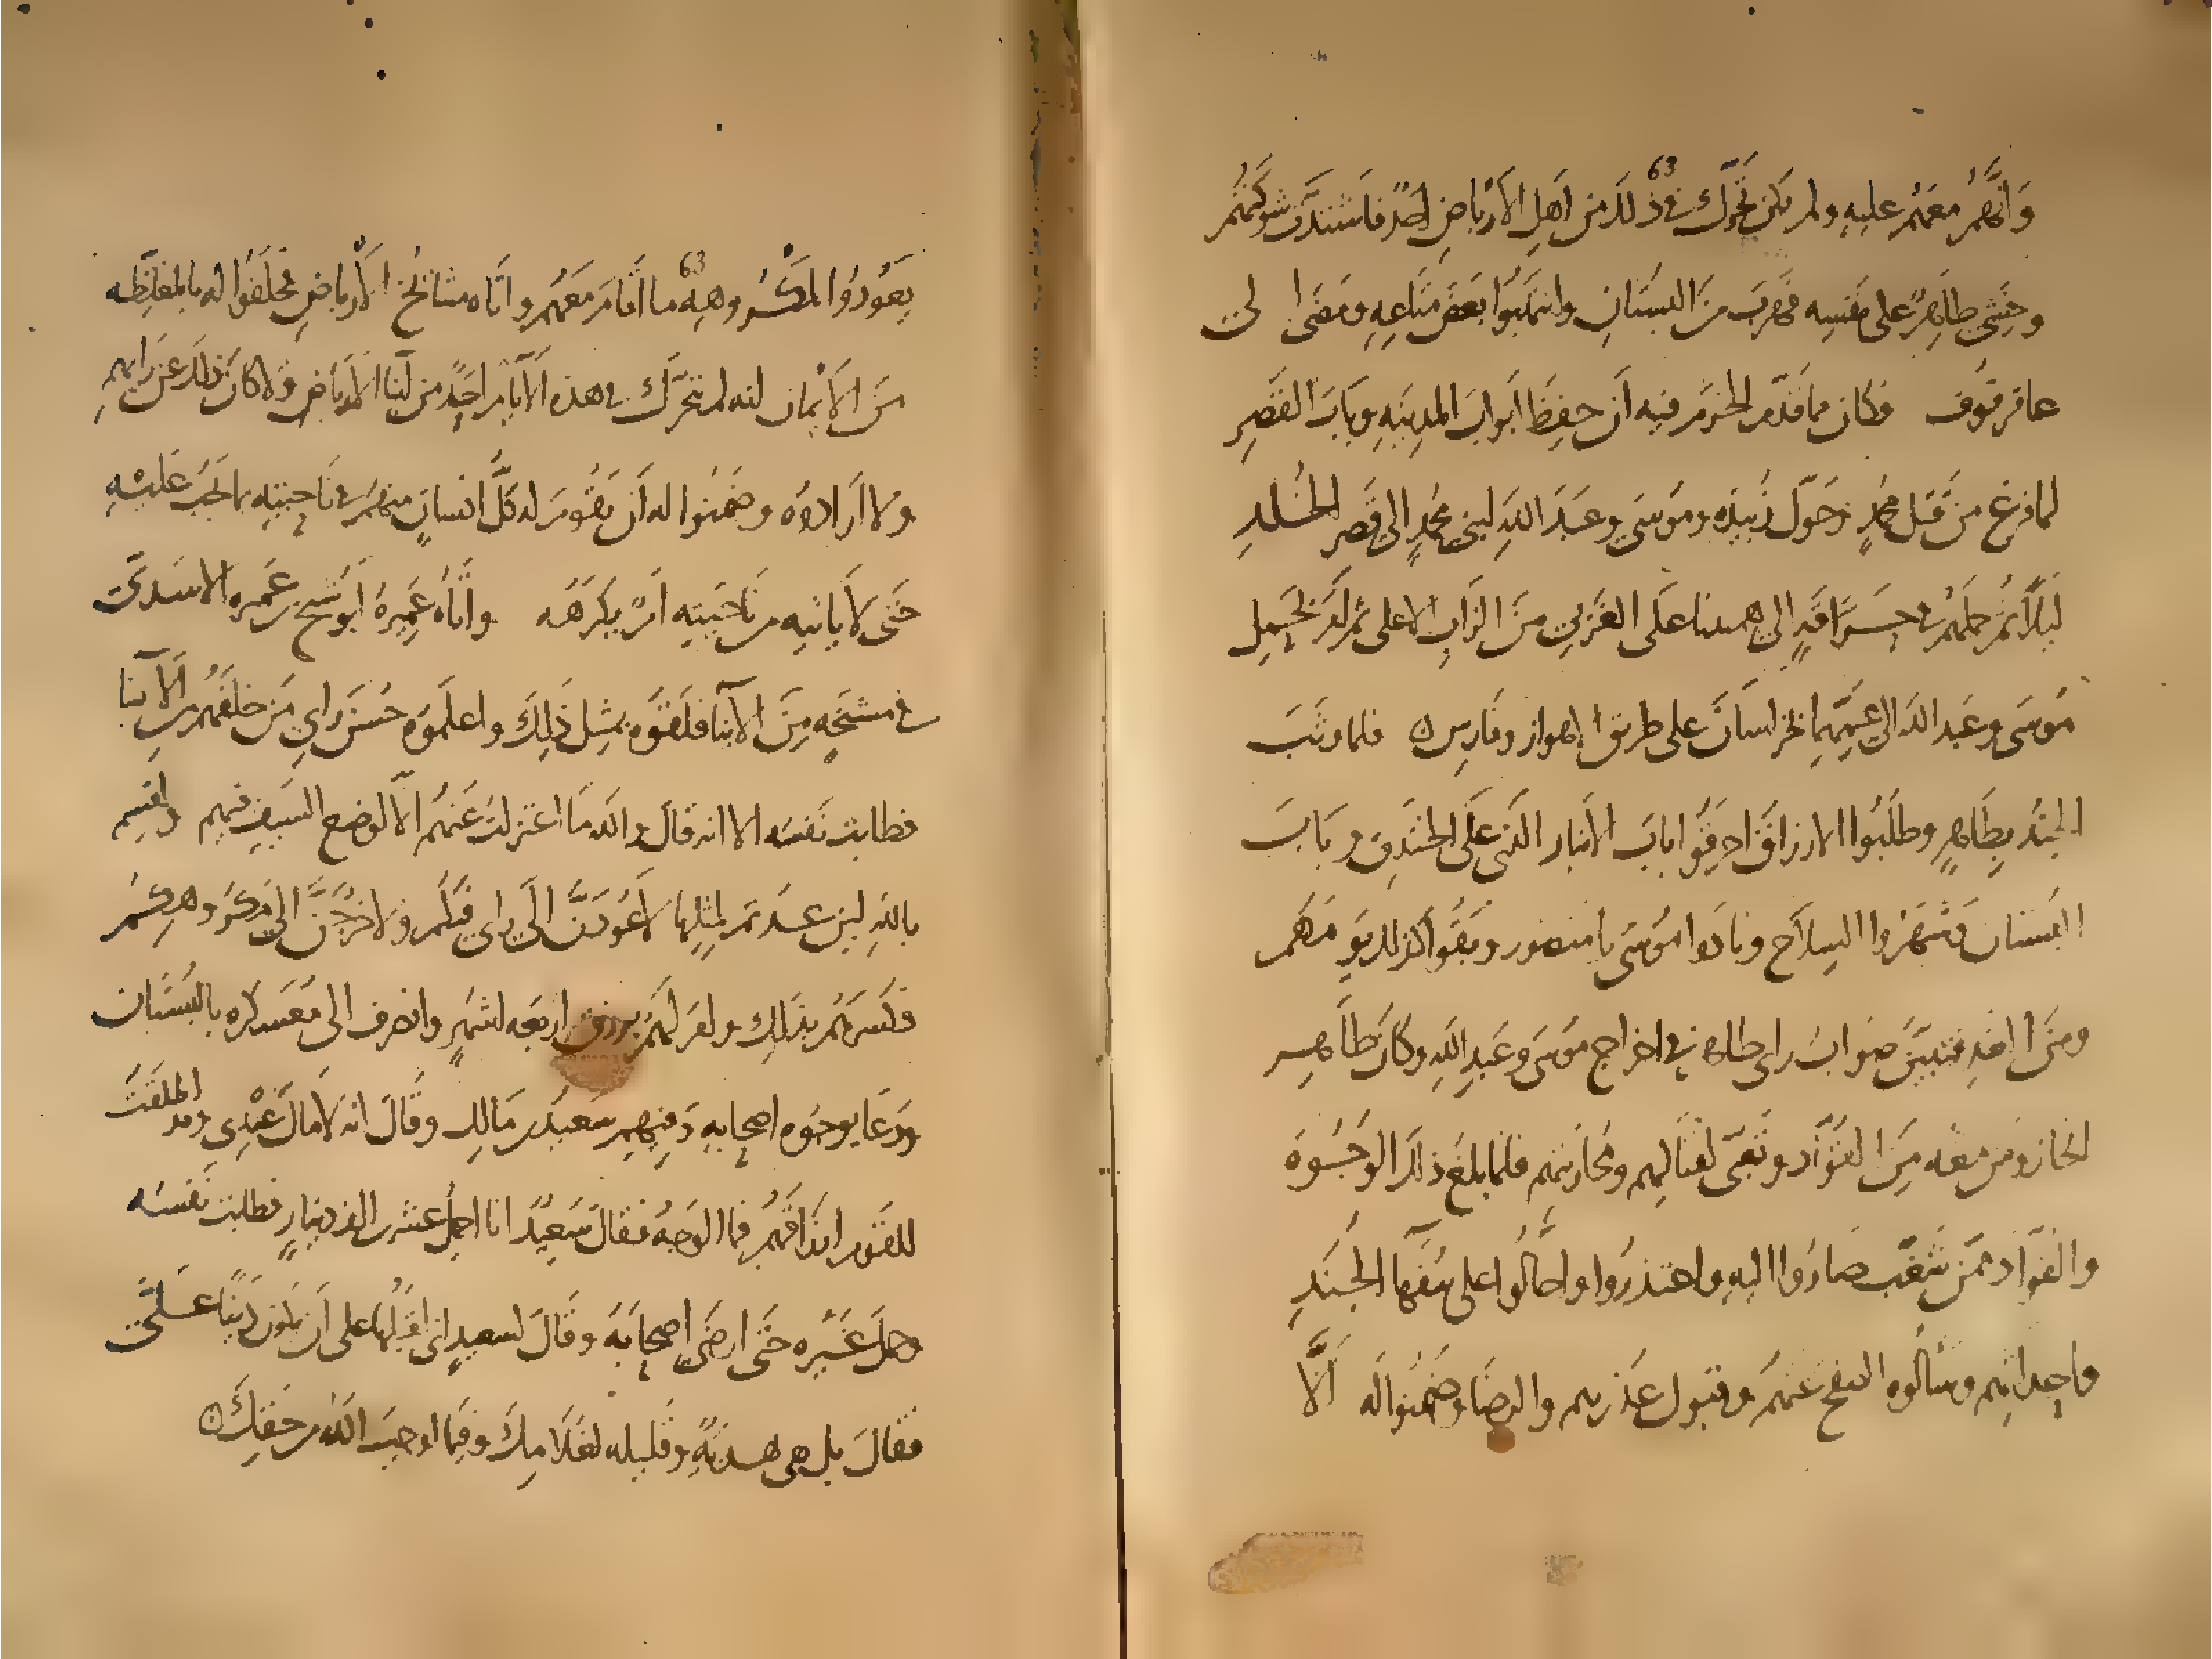 63
وَانَّهُمْ مَعَهُمْ عليهِ ولم يكن تحرَّك في ذلك من اهلِ الأرْباضِ احدٌ فاشتدَّت شوكتُهُم
وخشِيَ طاهِرٌ على نفسِه فهربَ منَ البستانِ وانتهَبُوا بَعضَ متاعِهِ ومَضَى الى
عاقرقوف فكان مما قدّم الحزم فيه أن حفظَ أبوابَ المدينهِ وبابَ القَصْرِ
لما فرغ من قتل محمدٍ وحَوّلَ زُبيدَه ومُوسَى وعَبْدَ اللهِ ابنى محمدٍ الى قصر الخُلدِ
ليلًا ثم حملهُم في حَرَّاقهٍ الى همينيا على الغربى منَ الزابِ الاعلى ثم امر بحَمْلِ
مُوسَى وعَبدالله الى عَمِّهِما بخراسانَ على طريق الاهواز وفَارِس ٥ فلما وثَبَ
الجندُ بِطَاهِرٍ وطلَبُوا الارزاقَ احرقُوا بابَ الأنبار الذى عَلَى الخندَقِ وبَابَ
البُستان وشَهَرُوا السِلاحَ ونادوا مُوسَى يا منصور وبَقُوا كذلك يومَهُم
ومنَ الغدِ فتبيّنَ صَوَابُ راى طاهرٍ فى اخراج مُوسَى وعَبدِاللهِ وكانَ طَاهِر
انحاز ومن معَه مِنَ القُوَّاد وتَعبّى لقتالِهِم ومُحَاربتِهم فلمّا بلغ ذلكَ الوُجُوهَ
والقوّادَ ممّن شغّب صَارُوا اليهِ واعتذرُوا واحالُوا على سُفَهَا الجُندِ
واحداثِهم وسَألُوه الصفح عنهُم وقبول عُذرِهم والرضَا وضَمنوا لَه الَّا
63
يعُودُوا لمكرُوههِ ما اقَامَ مَعَهُم واتَاه مشائخُ الأرباضِ فحلَفُوا له بالمغلّظَه
مِنَ الأيْمان انه لم يتحرَّك فى هذه الأيّام احَدٌ من ابنا الأرباض ولا كانَ ذلكَ عن رايهِم
ولا ارَادوُه وضَمنُوا له أن يقُوم له كلُّ انسانٍ منهم فى ناحيتِه بما يجبُ عليْهِ
حَتى لا ياتيه من نَاحيَتِه امرٌ يكرَهُه واتَاه عَميرَةُ ابو شيخ بن عَميره الاسَدِىّ
فى مشيخهٍ مِنَ الأبنا فلقوه بمثِل ذَلِكَ واعلمَوه حُسْنَ راىِ مَن خلفَهُم مِن الأبنا
فطابت نفسُه الا انه قالَ واللهِ مَا اعتزلتُ عَنهُم الا لوضع السَيفِ فيهم واقسِم
باللهِ لين عدتم لمثلِها لأعُودَنَّ الى راى فيكُم ولاخرجَنَّ الى مكرُوهِكُم
فكسَرَهُم بذَلِك وامَر لهُم برزق اربعَه اشهُرٍ وانصرف الى مُعَسكرِه بالبُستَان
ودَعَا بوجُوه اصحابِه وفيهم سَعيدُ بن مَالِك وقالَ انه لا مالَ عِنْدِى وقد اطلقتُ
للقَوم ارزاقَهُم فما الوجهُ فقالَ سَعِيدٌ انا احمِلُ عشرين الف دينارٍ فطابت نَفسُه
وحملَ غَيرُه حتَى ارضَى اصحابَهُ وقالَ لسعيدٍ انى اقبَلُها على أن تكون دَينًا عَلَىَّ
فقالَ بل هى هديّةٌ وقليله لغلامِكَ وفِيمَا اوجبَ اللهُ من حقِكَ ٥